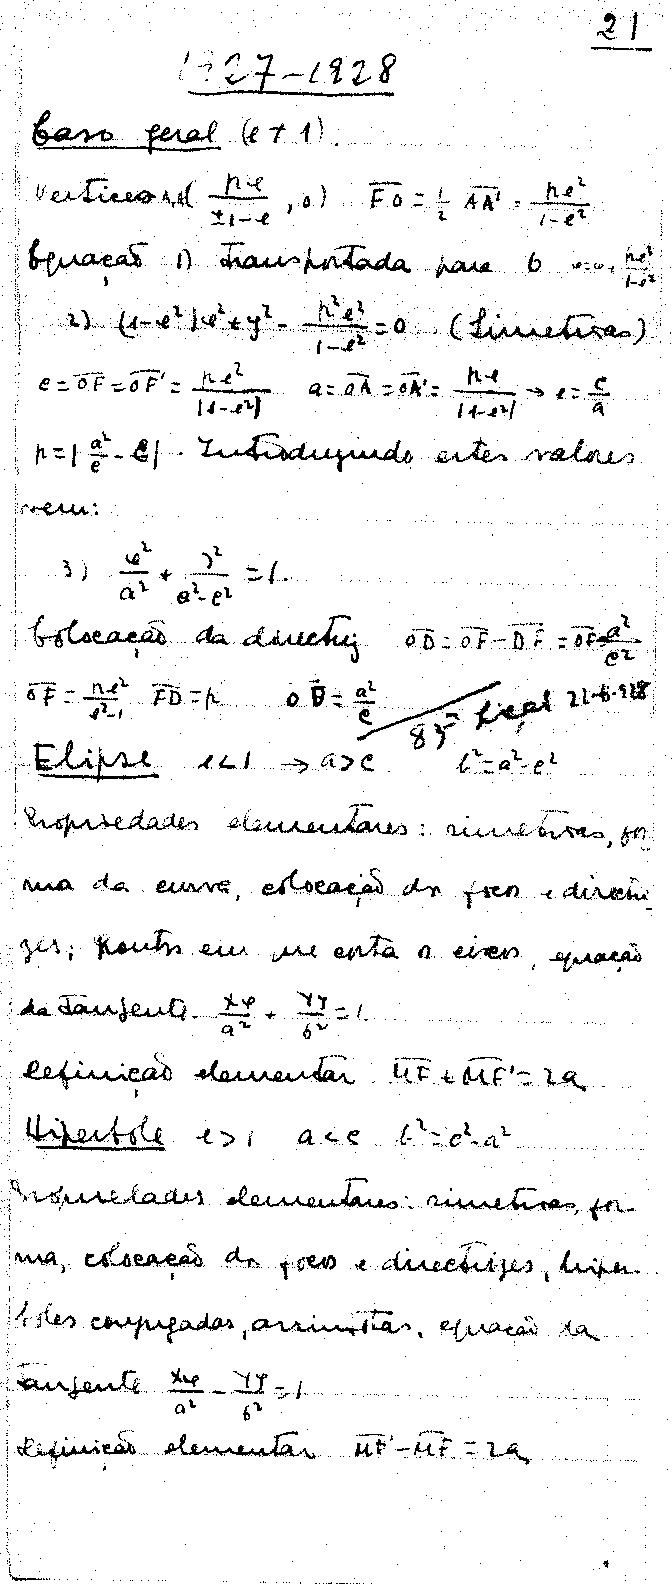 21
1927-1928
Caso geral (e ≠ 1).
Vertices A( pe/(±1-e) , 0) FO = 1/2 AA' = pe²/(1-e²)
Equação 1) transportada para O pe²/(1-e²)
2) (1-e²)x² + y² - p²e²/(1-e²) = 0 (Simetrias)
c = OF = OF' = pe²/|1-e²| a = OA = OA' = pe/|1-e²| → e = c/a
p = |a²/c - c|. Introduzindo estes valores
vem:
3) x²/a² + y²/(a²-c²) = 1.
Colocação da directriz OD = OF - DF = OF
OF = FD = p OD = a²/c
83ª Lição 22-6-928
Elipse e<1 → a>c b² = a²-c²
Propriedades elementares: simetrias, for-
ma da curva, colocação do focos e directri-
zes; Pontos em que corta o eixos, equação
da tangente. Xx/a² + Yy/b² = 1
Definição elementar MF + MF' = 2a
Hiperbole e>1 a<c b² = c²-a²
Propriedades elementares: simetrias, for-
ma, colocação do focos e directrizes, hiper-
boles conjugadas, assintotas, equação da
tangente Xx/a² - Yy/b² = 1
Definição elementar MF' - MF = 2a